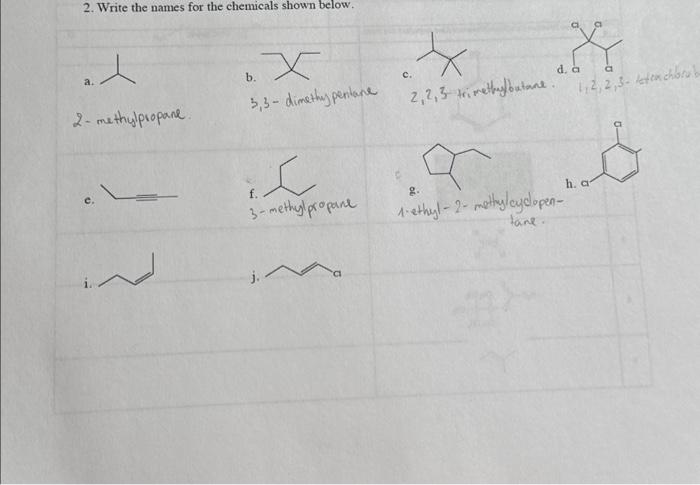 2. Write the names for the chemicals shown below.
a.
2-methylpropane.
b.
3,3-dimethypentane
c.
2,2,3-trimethylbutane.
Cl Cl
d. Cl Cl
1,2,2,3-
e.
f.
3-methylpropane
g.
1-ethyl-2-methylcyclopen-
tane.
Cl
h. Cl
i.
j. Cl